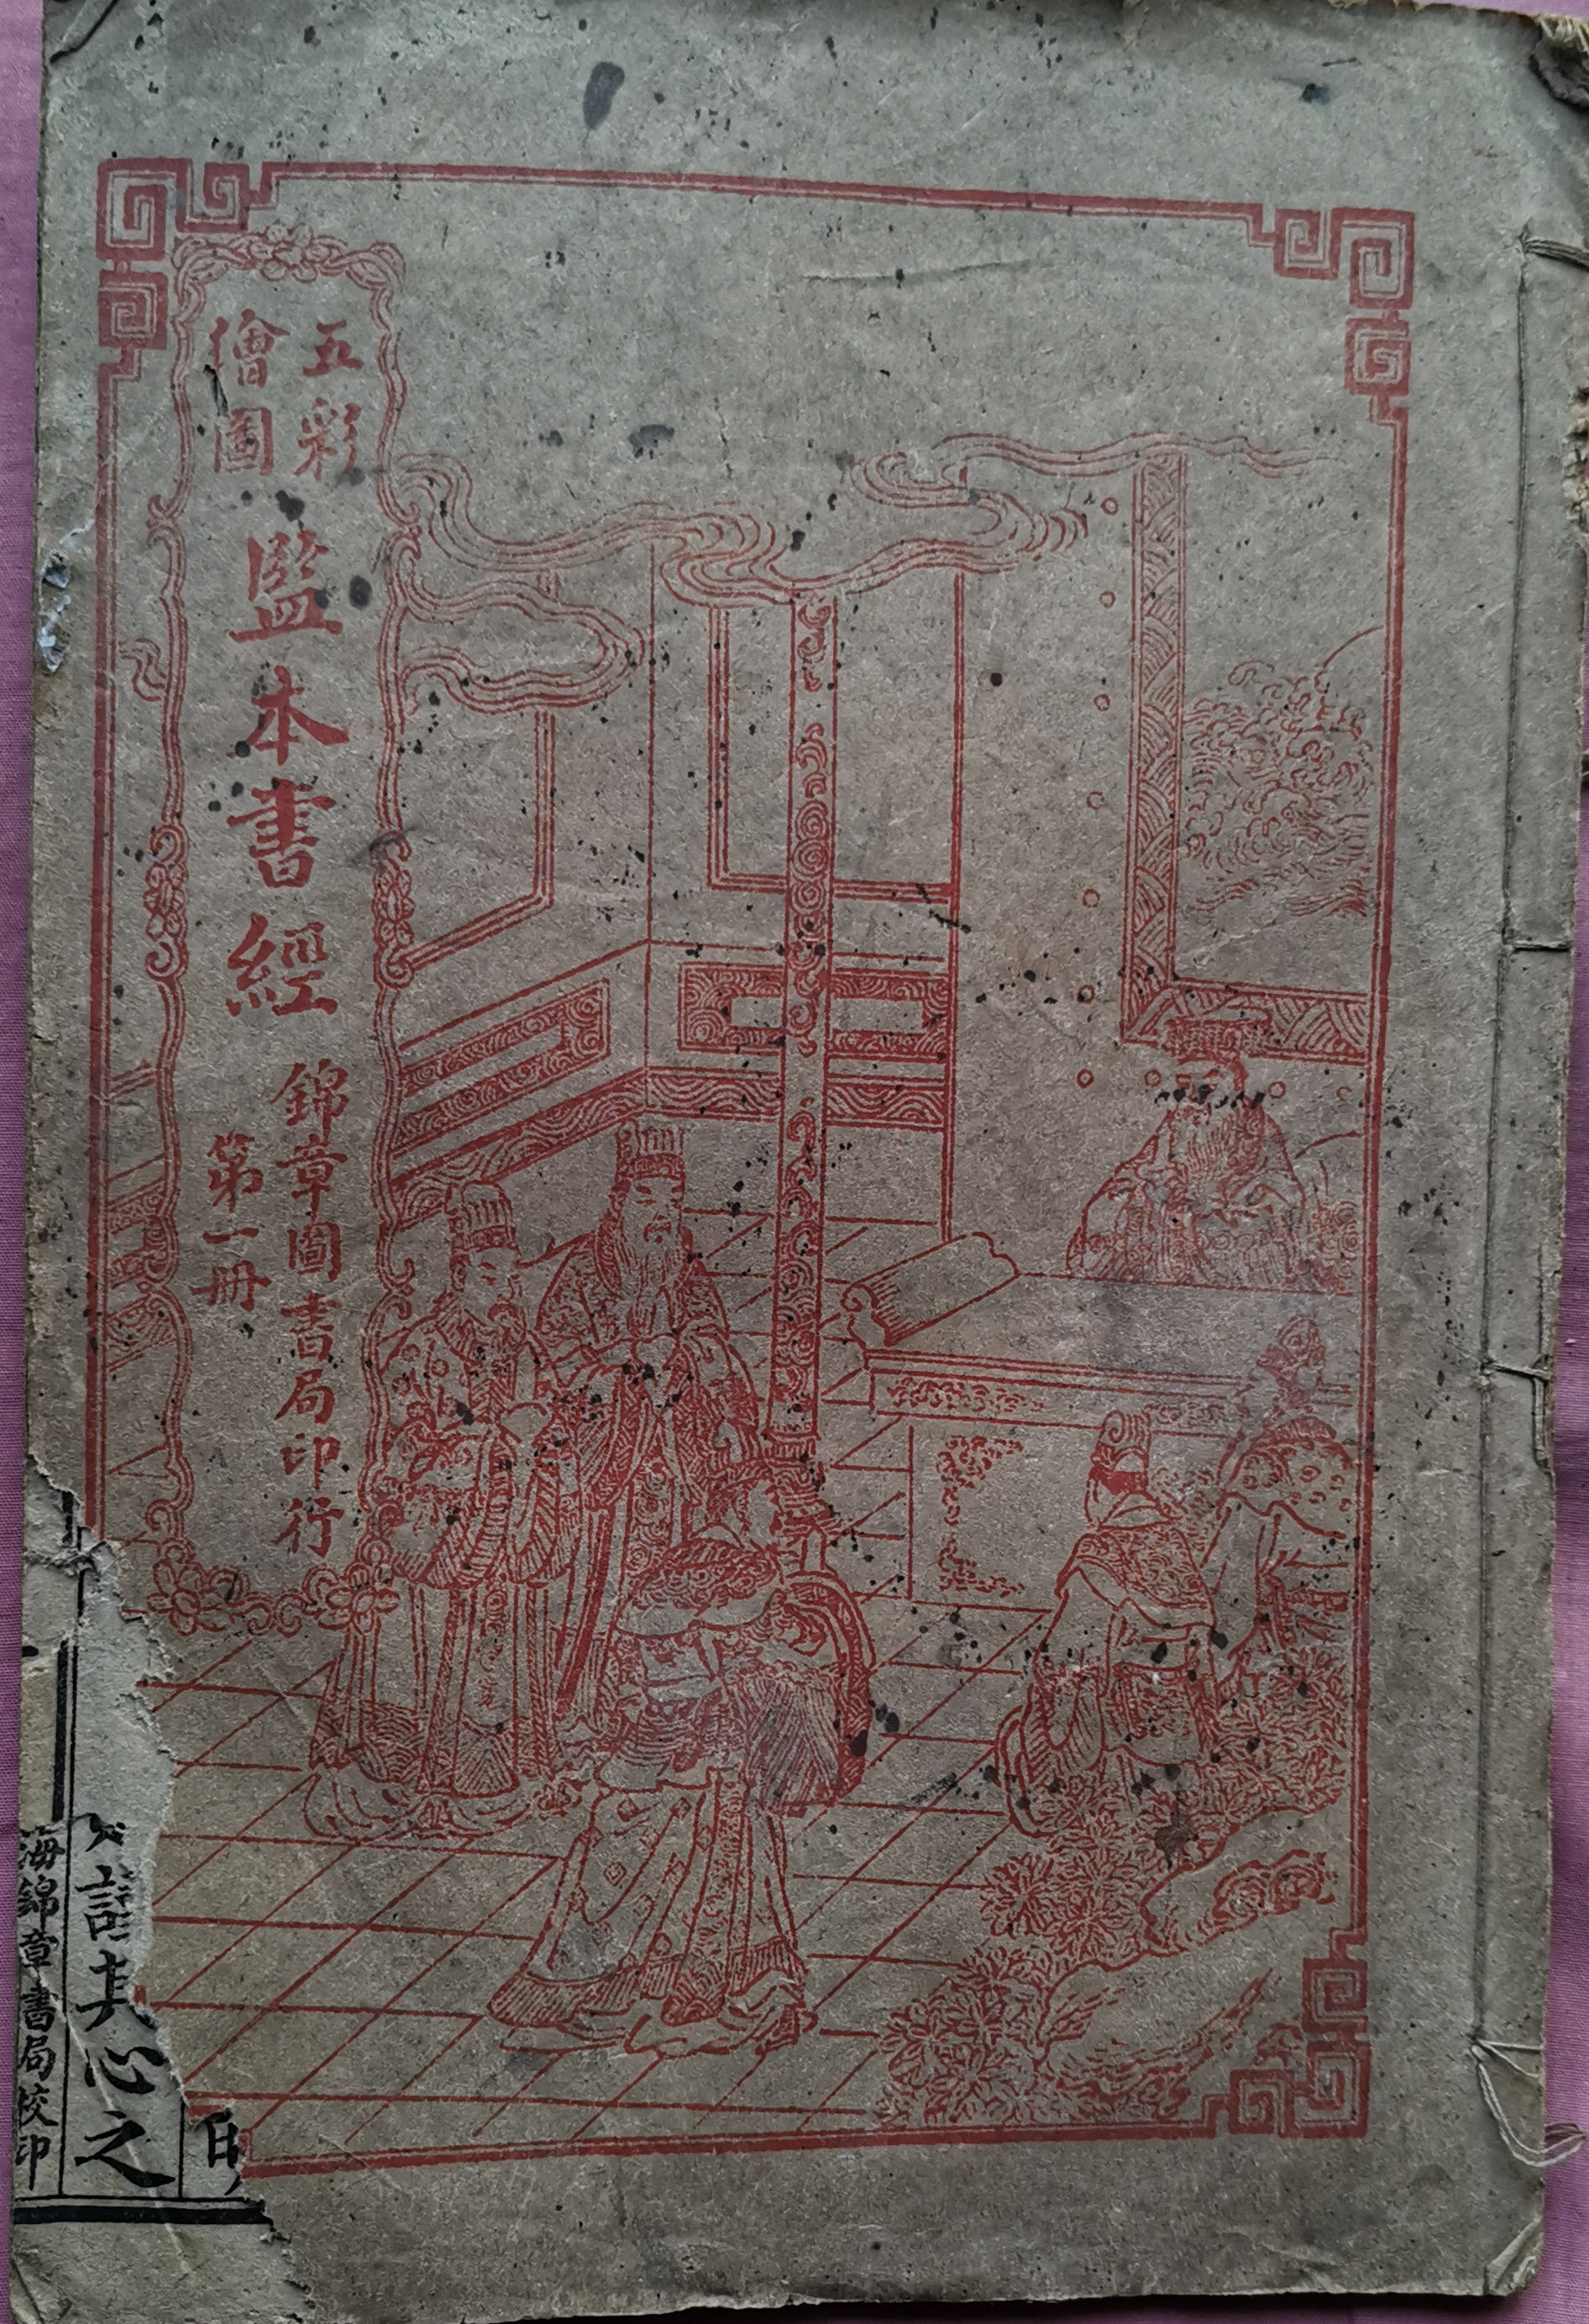 五彩
繪圖
監本書經
錦章圖書局印行
第一冊
其心之
海錦章書局校印